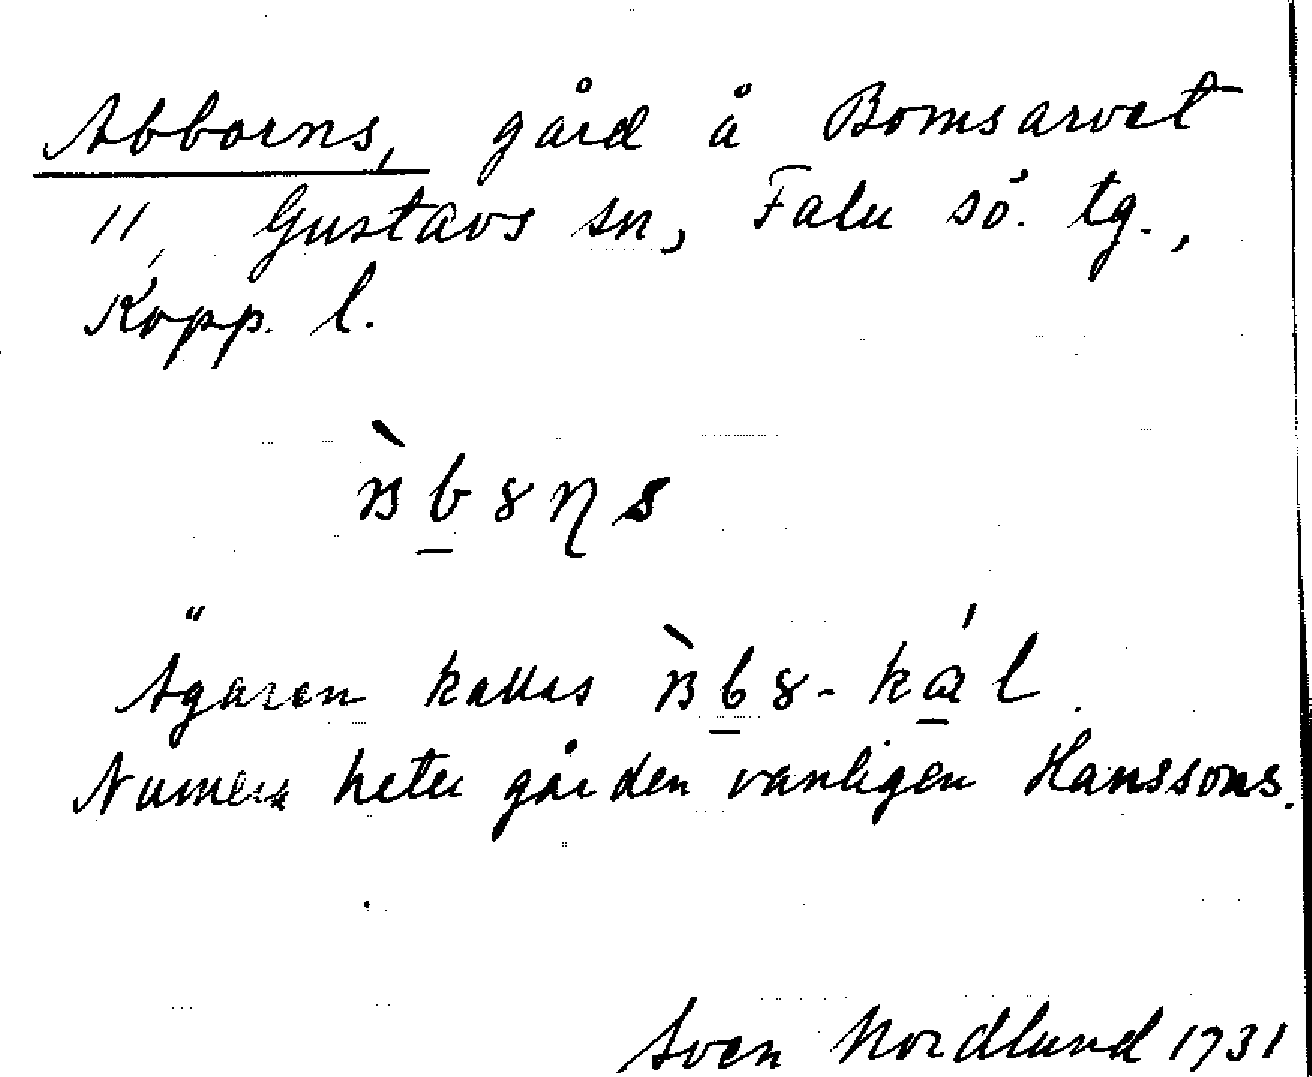 Abborns, gård å Bomsarvet
11, Gustavs sn, Falu sö. tg.,
Kopp. l.
Ägaren kallas
Numera heter gården vanligen Hanssons.
Sven Nordlund 1931